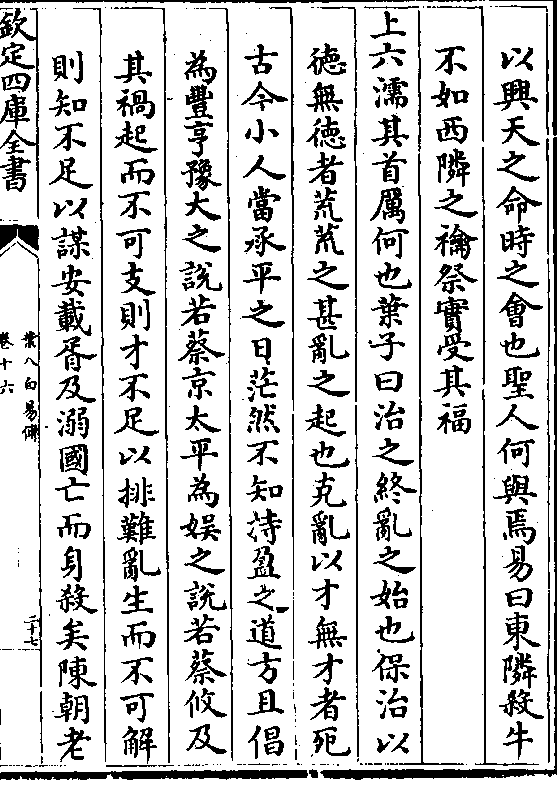 以興天之命時之會也聖人何與焉易曰東隣殺牛
不如西隣之禴祭實受其福
上六濡其首厲何也葉子曰治之終亂之始也保治以
徳無徳者荒荒之甚亂之起也克亂以才無才者死
古今小人當承平之日茫然不知持盈之道方且倡
為豐亨豫大之說若蔡京太平為娱之說若蔡攸及
其禍起而不可支則才不足以排難亂生而不可解
則知不足以謀安載胥及溺國亡而身殺矣陳朝老
欽定四庫全書
葉八白易傳
卷十六
二十七